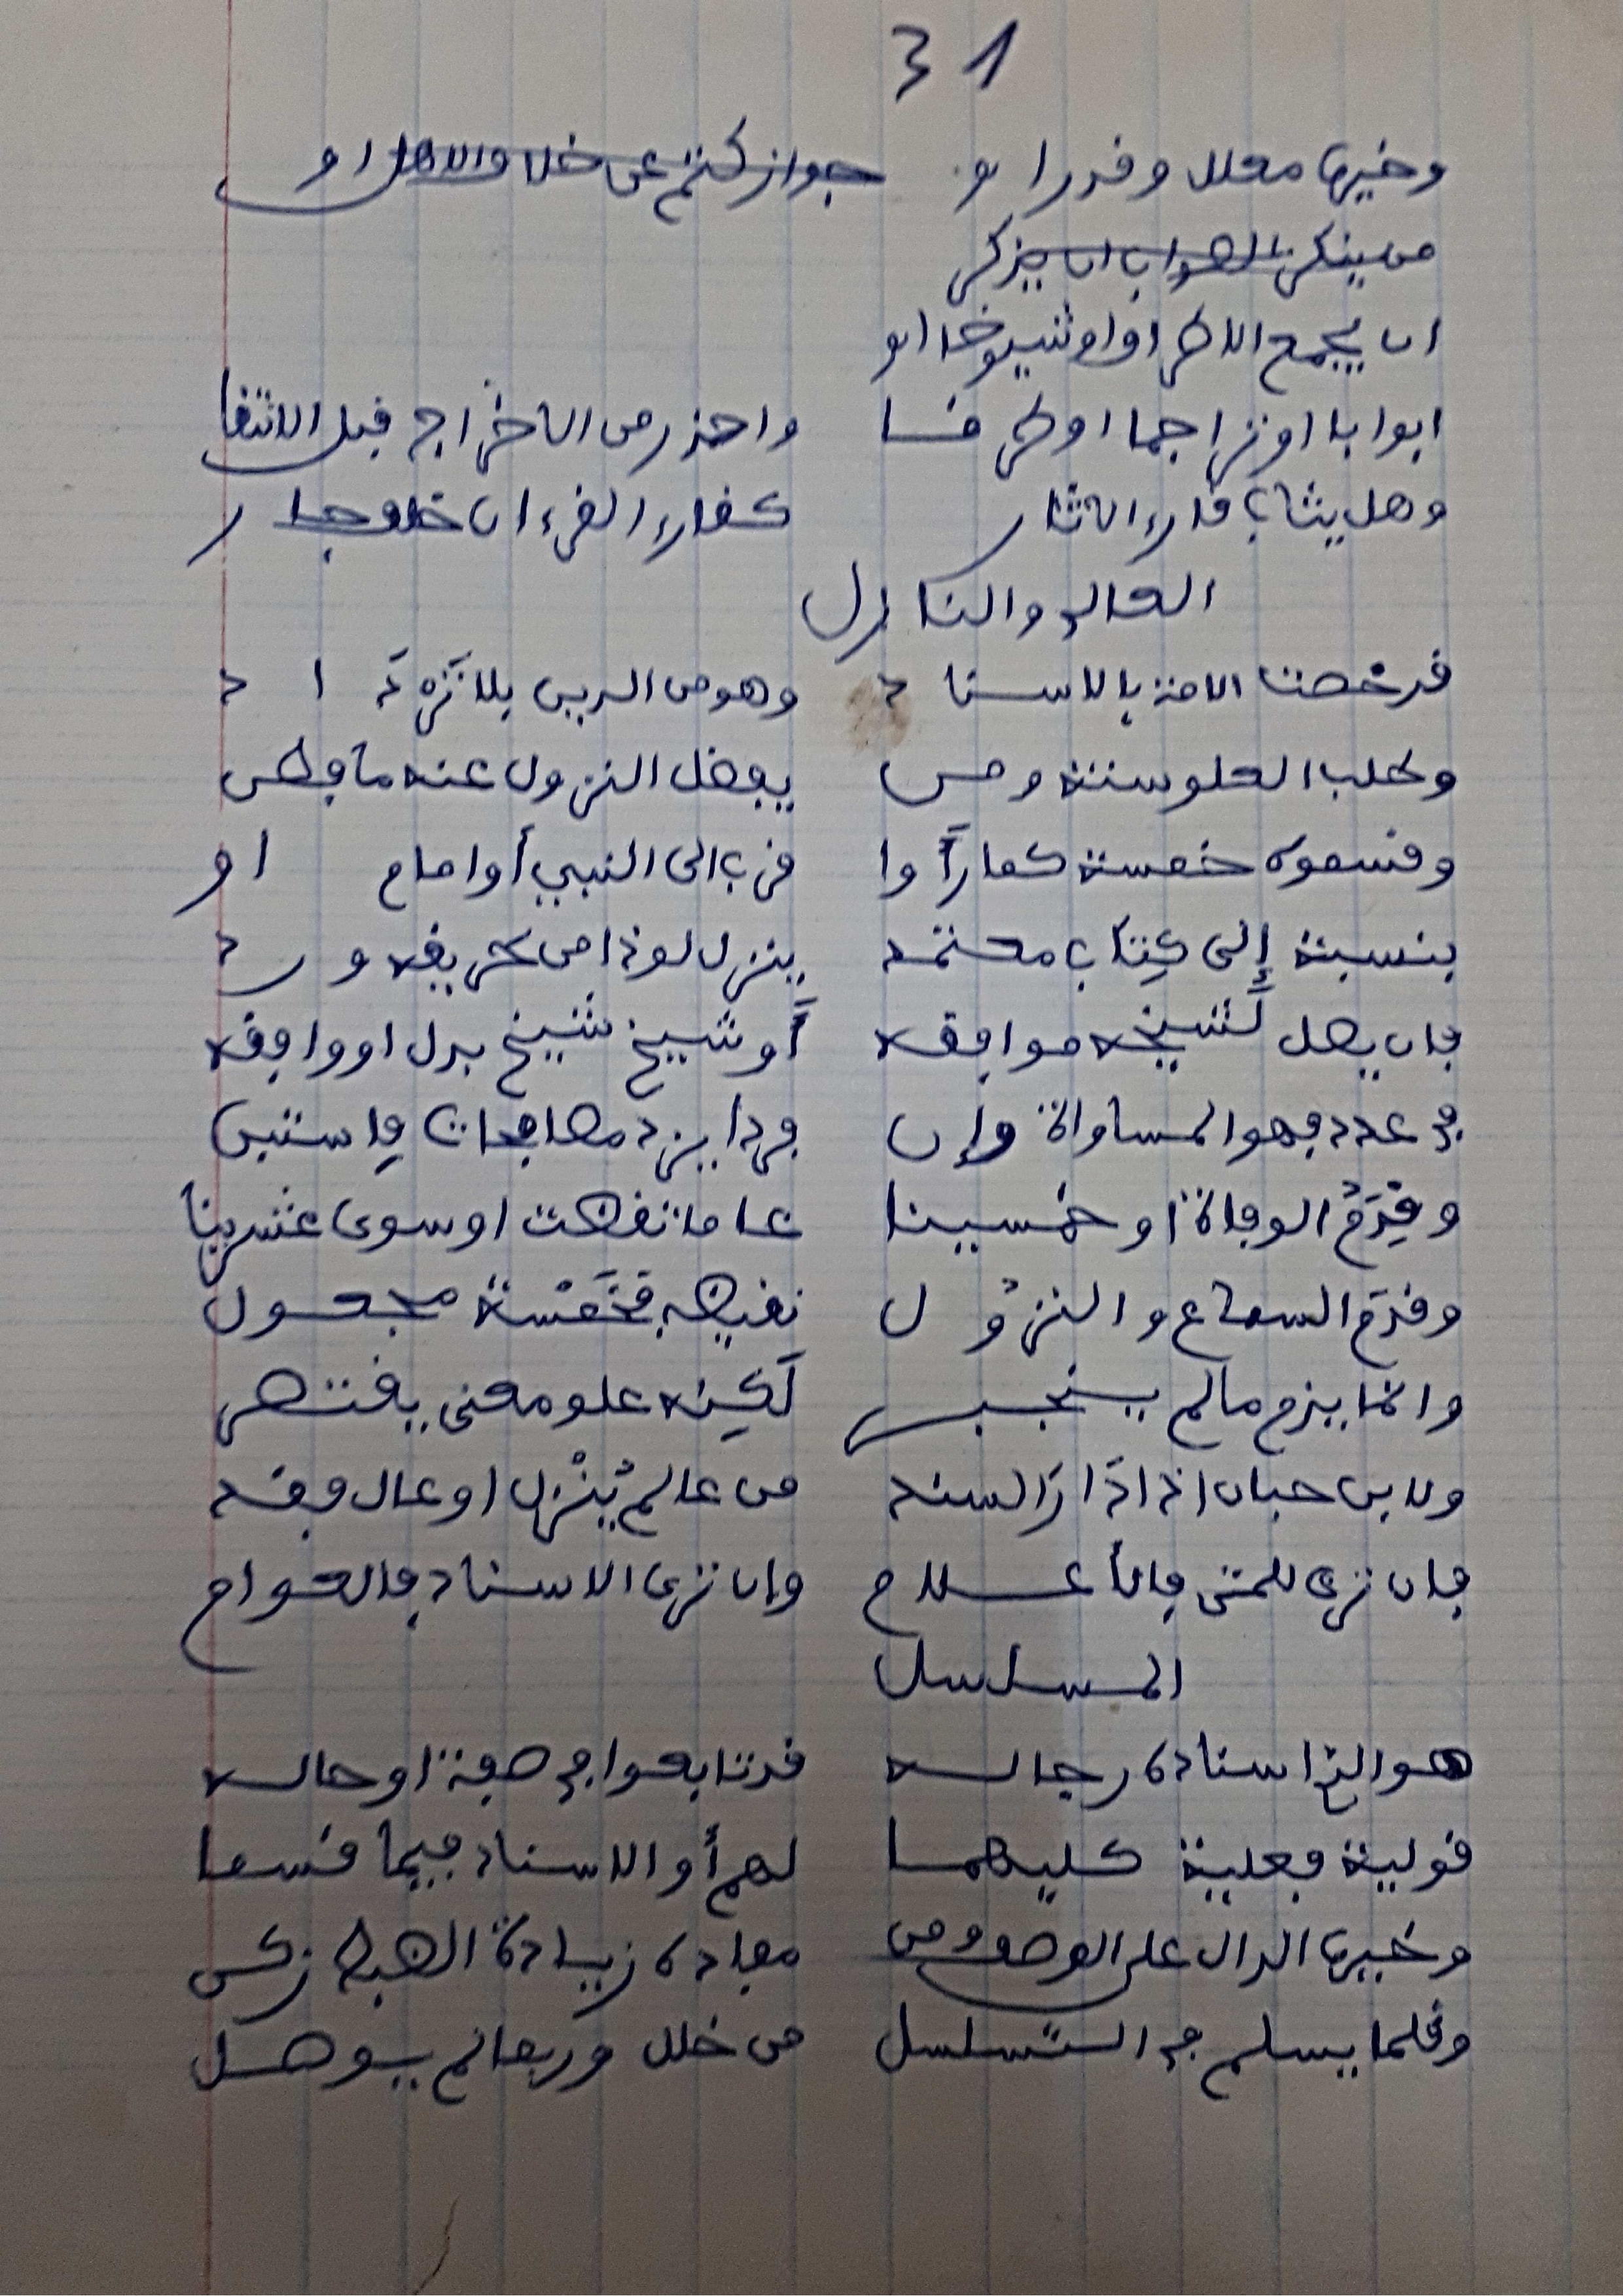 31
وخيرها معلل وقد رأوا جواز كتم عن خلاف الأهل أو
من ينكر الصواب ان يذكر
ان يجمع الاطراف او شيوخا او
ابوابا او تراجما او طرقا واحذر من الاخراج قبل الانتقا
وهل يثاب قارئ الاثار كقارئ القرءان خلف جار
العالي والنازل
قد خصت الامة بالاسناد وهو من الدين بلا تَرْدَاد
وطلب العلو سنة ومن يفضل النزول عنه ما فطن
وقسموه خمسة كما رَأَوا قرب الى النبي أو امام او
بنسبة إلى كِتَاب معتمد ينزل لو ذا من طريقه ورد
فان يصل لشَيخه موافقه أَو شيخ شيخ بدل او وافقه
في عدد فهو المساواة وإن فردا يزد مصافحات فاستبن
وقِدَمُ الوفاة او خمسينا عاما تقضت او سوى عشرينا
وقدم السماع والنزُول نقيضه فخَمْسة مجعول
وانما يذم ما لم ينجبر لَكِنه علو معنى يقتصر
ولابن حبان اذا دَار السند من عالم يُنْزل او عال فقد
فان ترى للمتن فالأعلام وان ترى الاسناد فالعوام
المسلسل
هو الذي اسناده رجاله قد تابعوا في صفة او حاله
قولية فعلية كليهما لهم أو الاسناد فيما قسما
وخيرها الدال على الوصف ومن مفاده زيادة الضبط زكن
وقلما يسلم في التَسلسل من خلل وربما لم يوصل